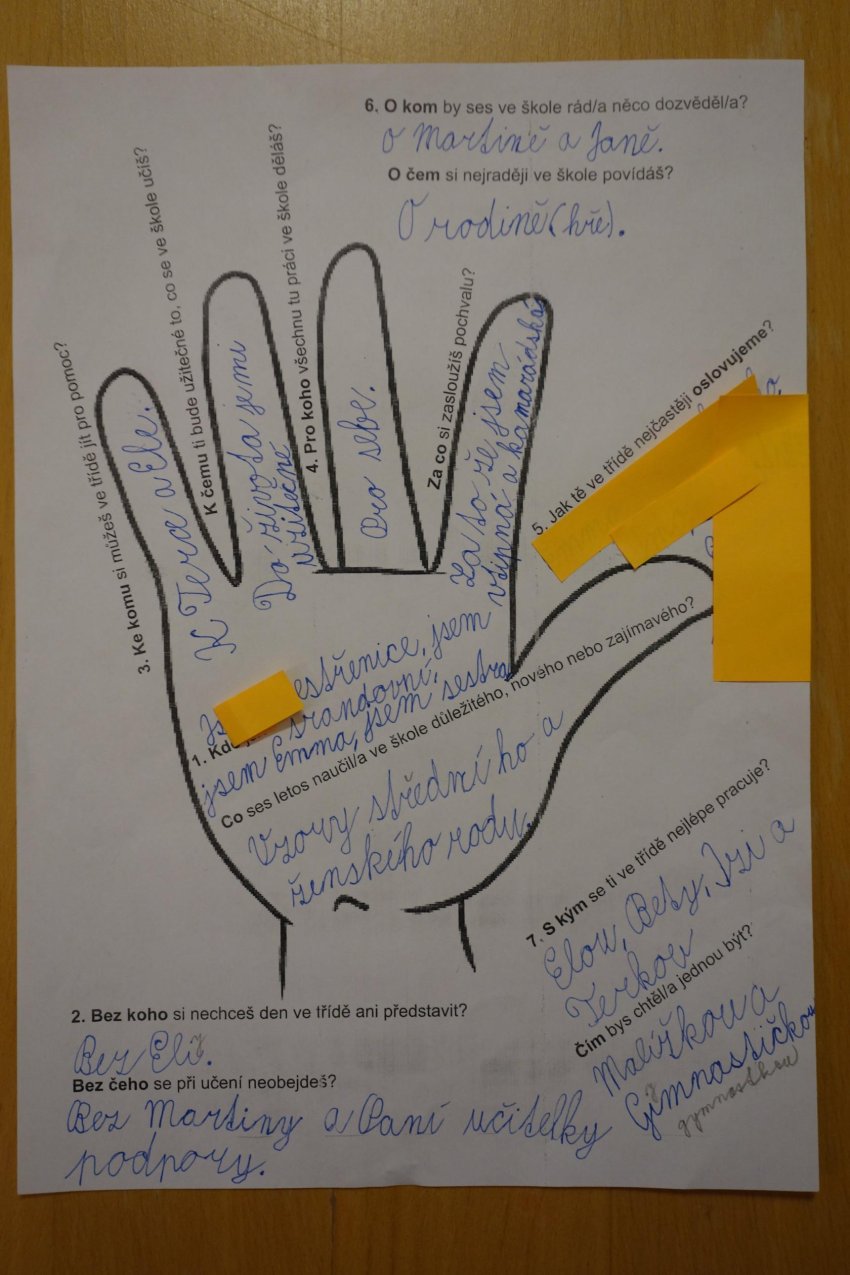 6. O kom by ses ve škole rád/a něco dozvěděl/a?
O Martině a Janě.
O čem si nejraději ve škole povídáš?
O rodině (hře).
3. Ke komu si můžeš ve třídě jít pro pomoc?
K Terce a Ele.
K čemu ti bude užitečné to, co se ve škole učíš?
Do života je mi
užitečné
4. Pro koho všechnu tu práci ve škole děláš?
Pro sebe.
Za co si zasloužíš pochvalu?
Za to že jsem
vtipná a kamarádská
5. Jak tě ve třídě nejčastěji oslovujeme?
estřenice, jsem
srandovní,
1. Kdo
jsem Emma, jsem sestra
Co ses letos naučil/a ve škole důležitého, nového nebo zajímavého?
Vzory středního a
ženského rodu.
7. S kým se ti ve třídě nejlépe pracuje?
Elou, Bety, Izi a
Terkou
Čím bys chtěl/a jednou být?
Malířkou a
Gimnastičkou
gymnastkou
2. Bez koho si nechceš den ve třídě ani představit?
Bez Eli.
Bez čeho se při učení neobejdeš?
Bez Martiny a Paní učitelky
podpory.